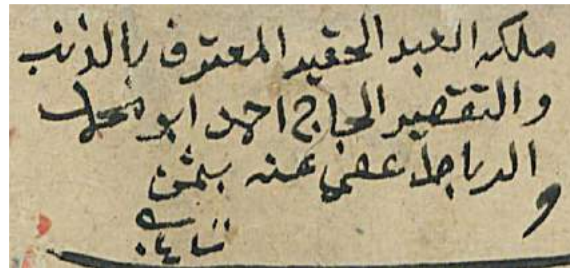 ملكه العبد الحقير المعترف بالذنب
والتقصير الحاج احمد ابو
الرباط عفى عنه بثمن
و